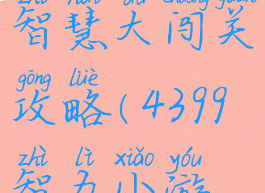 智慧大闯关
gōng lüè
攻略(4399
zhì lì xiǎo yóu
智力小游